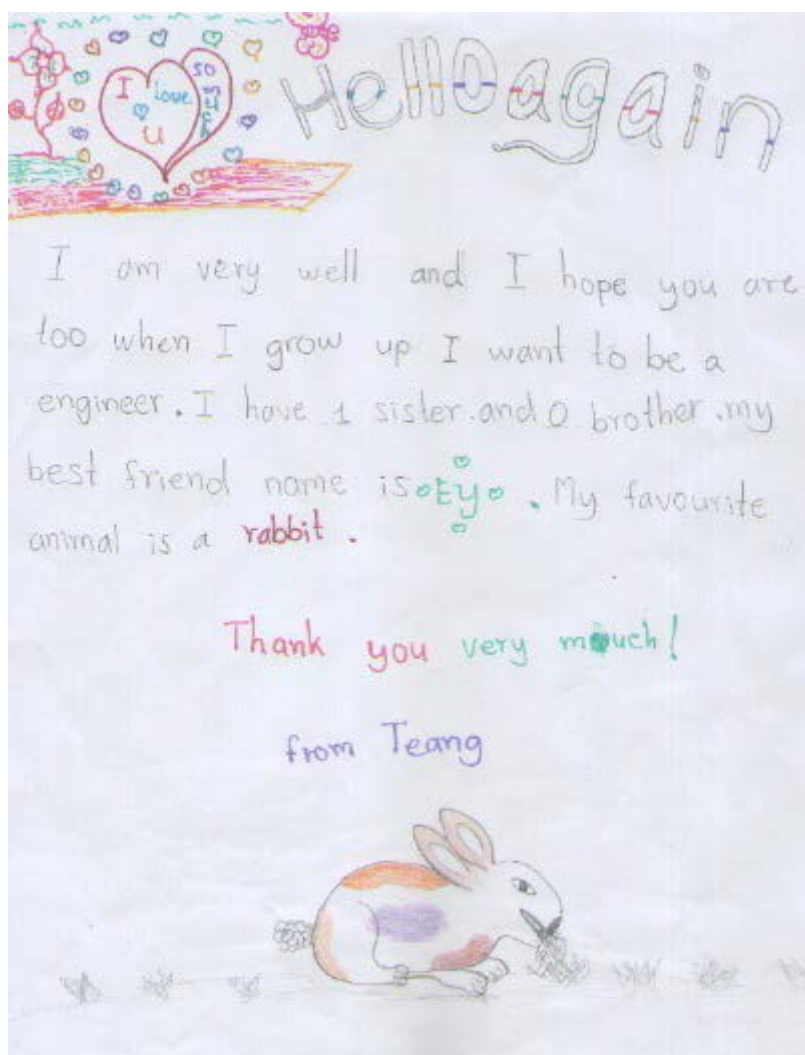 I love U
so such
Hello again
I am very well and I hope you are
too when I grow up I want to be a
engineer. I have 1 sister. and 0 brother. my
best friend name is Ey. My favourite
animal is a rabbit.
Thank you very mouch!
from Teang